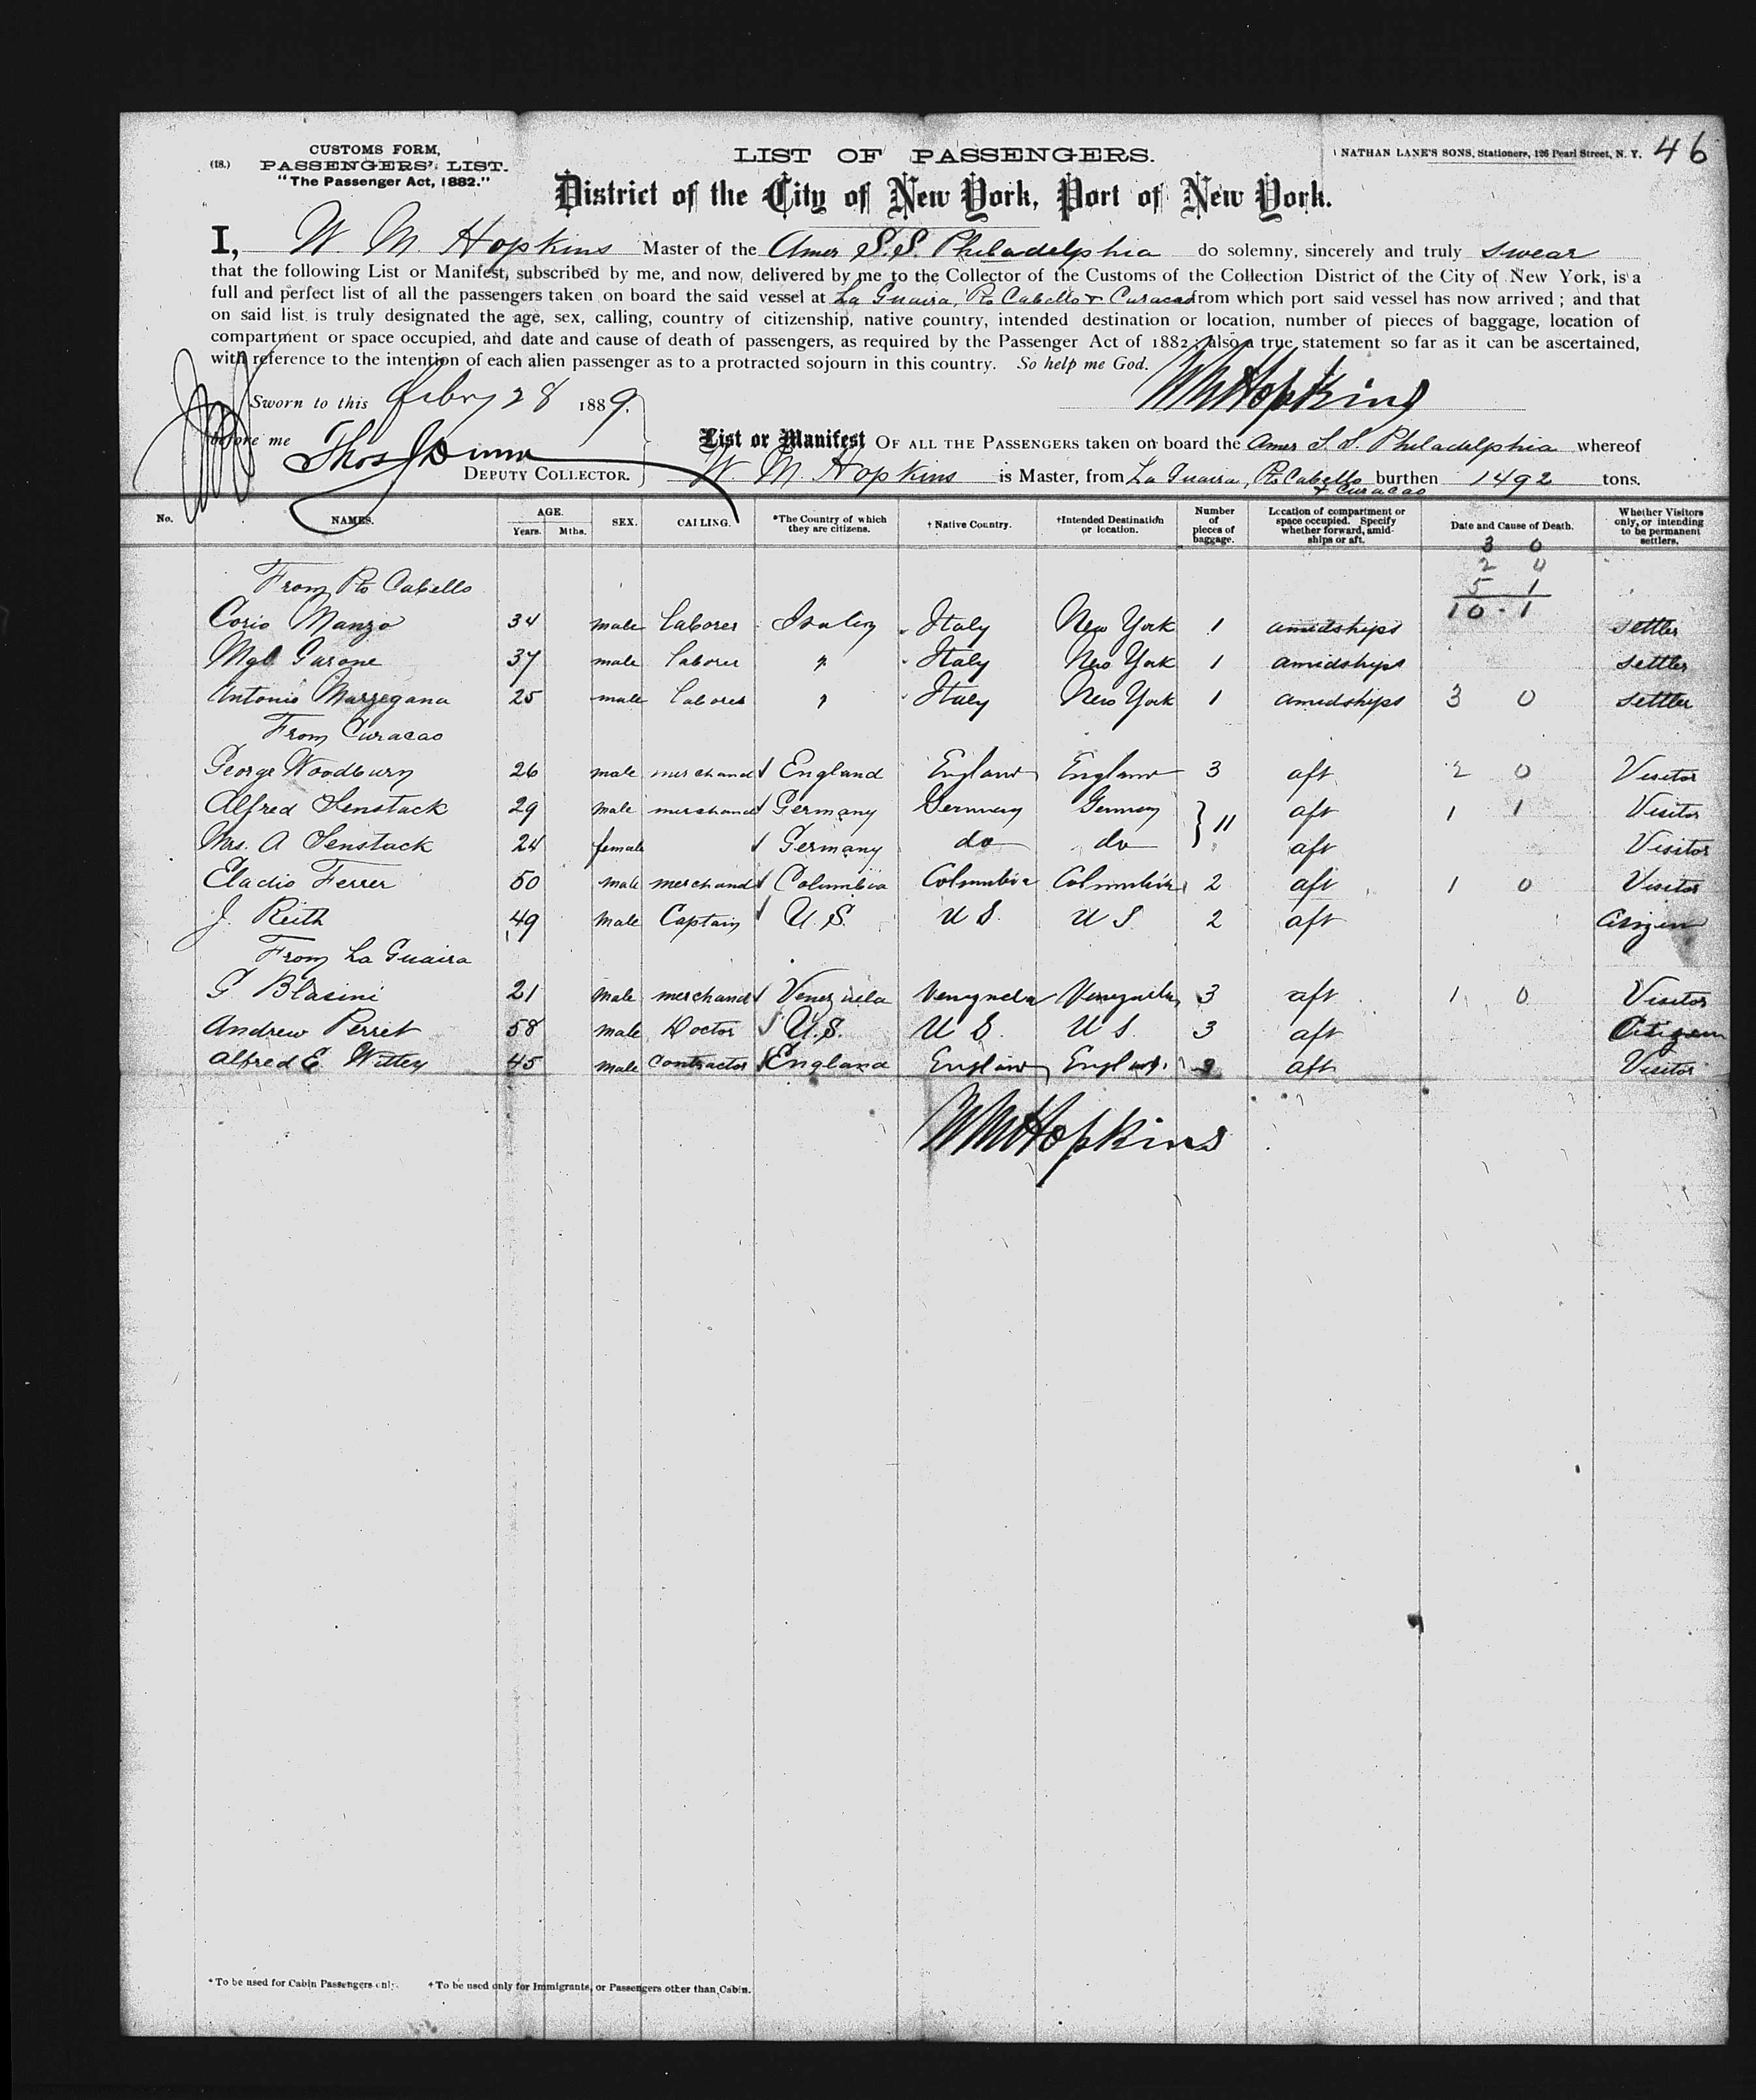 CUSTOMS FORM,
(18.) PASSENGERS' LIST.
"The Passenger Act, 1882."
LIST OF PASSENGERS.
NATHAN LANE'S SONS, Stationers, 126 Pearl Street, N. Y. 46
District of the City of New York, Port of New York.
I, W. M. Hopkins Master of the Amer S.S. Philadelphia do solemny, sincerely and truly swear
that the following List or Manifest, subscribed by me, and now, delivered by me to the Collector of the Customs of the Collection District of the City of New York, is a
full and perfect list of all the passengers taken on board the said vessel at La Guaira, Pto Cabello & Curacao from which port said vessel has now arrived; and that
on said list is truly designated the age, sex, calling, country of citizenship, native country, intended destination or location, number of pieces of baggage, location of
compartment or space occupied, and date and cause of death of passengers, as required by the Passenger Act of 1882; also a true statement so far as it can be ascertained,
with reference to the intention of each alien passenger as to a protracted sojourn in this country. So help me God.
WMHopkins
Sworn to this Febry 28 1889.
before me Thos J Dunn
DEPUTY COLLECTOR.
List or Manifest OF ALL THE PASSENGERS taken on board the Amer S.S. Philadelphia whereof
W. M. Hopkins is Master, from La Guaira, Pto Cabello & Curacao burthen 1492 tons.
No. NAMES. AGE. Years. Mths. SEX. CALLING. *The Country of which they are citizens. † Native Country. †Intended Destination or location. Number of pieces of baggage. Location of compartment or space occupied. Specify whether forward, amidships or aft. Date and Cause of Death. Whether Visitors only, or intending to be permanent settlers.
3 0
2 0
From Pto Cabello 5 1
10 - 1
Corio Manzo 34 male laborer Italy Italy New York 1 amidships settler
Mgl Garone 37 male laborer " Italy New York 1 amidships settler
Antonio 25 male laborer " Italy New York 1 amidships 3 0 settler
From Curacao
George Woodbury 26 male merchant England England England 3 aft 2 0 Visitor
Alfred Senstack 29 male merchant Germany Germany Germany } 11 aft 1 1 Visitor
Mrs. A Senstack 24 female Germany do do aft Visitor
Eladio Ferrer 50 male merchant Columbia Columbia Columbia 2 aft 1 0 Visitor
J. Reith 49 male Captain U.S. U S. U S. 2 aft Citizen
From La Guaira
G Blasini 21 male merchant Venezuela Venezuela Venezuela 3 aft 1 0 Visitor
Andrew Perret 58 male Doctor U.S. U S. U S. 3 aft Citizen
Alfred E. Wittey 45 male contractor England England England aft Visitor
WMHopkins
*To be used for Cabin Passengers only. †To be used only for Immigrants, or Passengers other than Cabin.